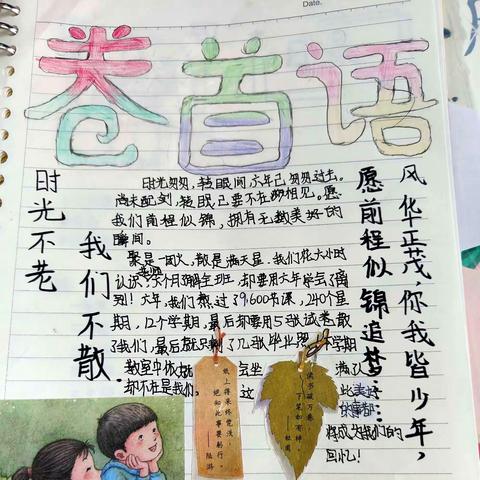 Date.
卷首语
时光不老
我们不散
时光匆匆,转眼间六年已匆匆过去。
尚未配剑,转眼已要不在江湖相见。愿
我们前程似锦,拥有无数美好的
瞬间。
聚是一团火,散是满天星。我们花六小时
认识,
个月了解全班,却要用六年学会了离
别!六年,我们熬过了9600节课,240个星
期,12个学期,最后却要用5张试卷散
了我们,最后就只剩了几张毕业照
学期
教室中依
坐
满了
却不在是我们,
这
此美好
将成为我们的
回忆!
愿前程似锦追梦……
风华正茂,你我皆少年,
纸上得来终觉浅,
绝知此事要躬行。
——陆游
读书破万卷,
下笔如有神。
——杜甫